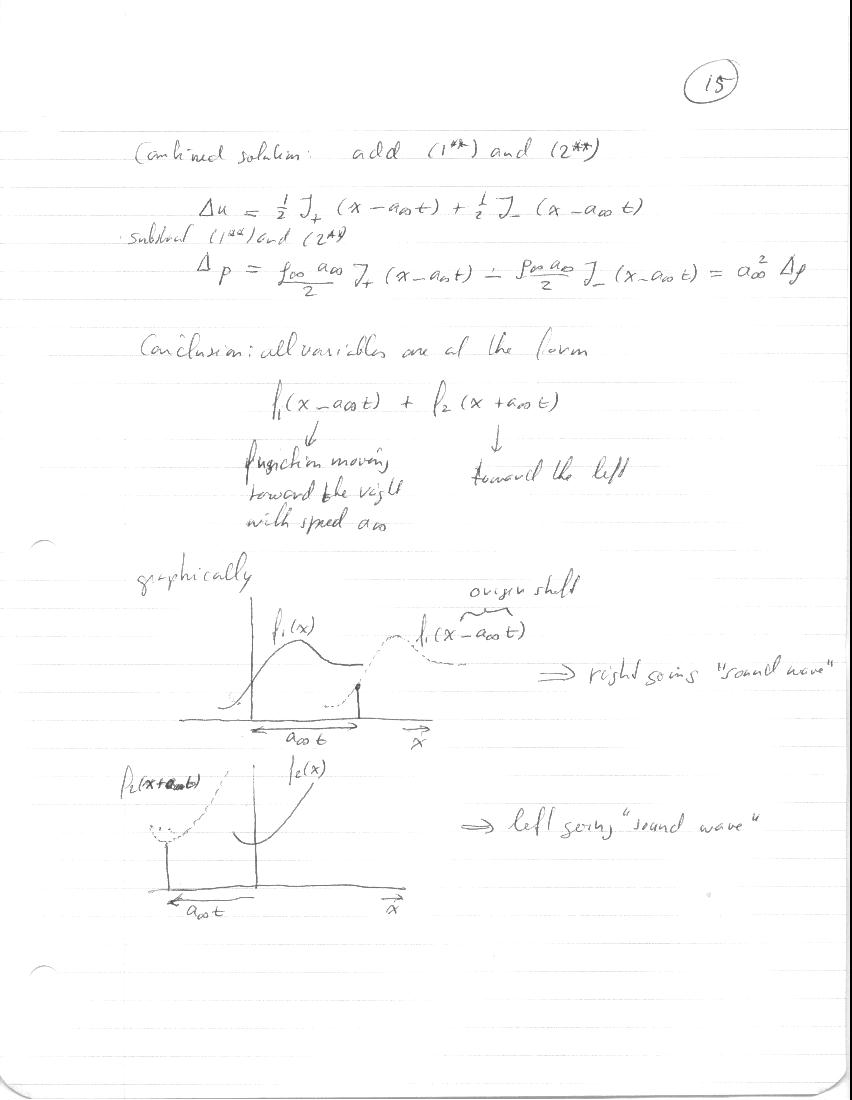 15
Combined solution: add (1**) and (2**)
Δu = ½ J₊ (x - a∞t) + ½ J₋ (x - a∞ t)
substract (1**) and (2**)
Δp = ρ∞ a∞/2 J₊ (x - a∞t) - ρ∞ a∞/2 J₋ (x - a∞ t) = a∞² Δρ
Conclusion: all variables are of the form
f₁(x - a∞t) + f₂ (x + a∞ t)
↓ ↓
function moving toward the left
toward the right
with speed a∞
graphically
origin shift
f₁(x) f₁(x - a∞ t)
⇒ right going "sound wave"
a∞ t x
f₂(x+a∞t) f₂(x)
⇒ left going "sound wave"
a∞ t x